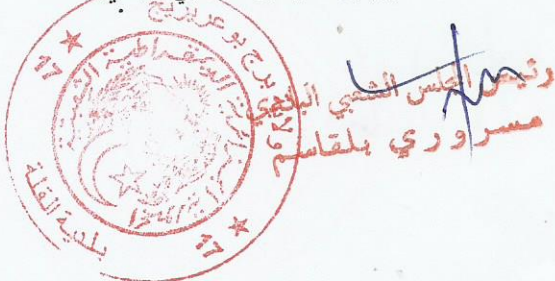 برج بوعريريج
الجمهورية الجزائرية الديمقراطية الشعبية
بلدية القلة
رئيس المجلس الشعبي البلدي
مسروري بلقاسم